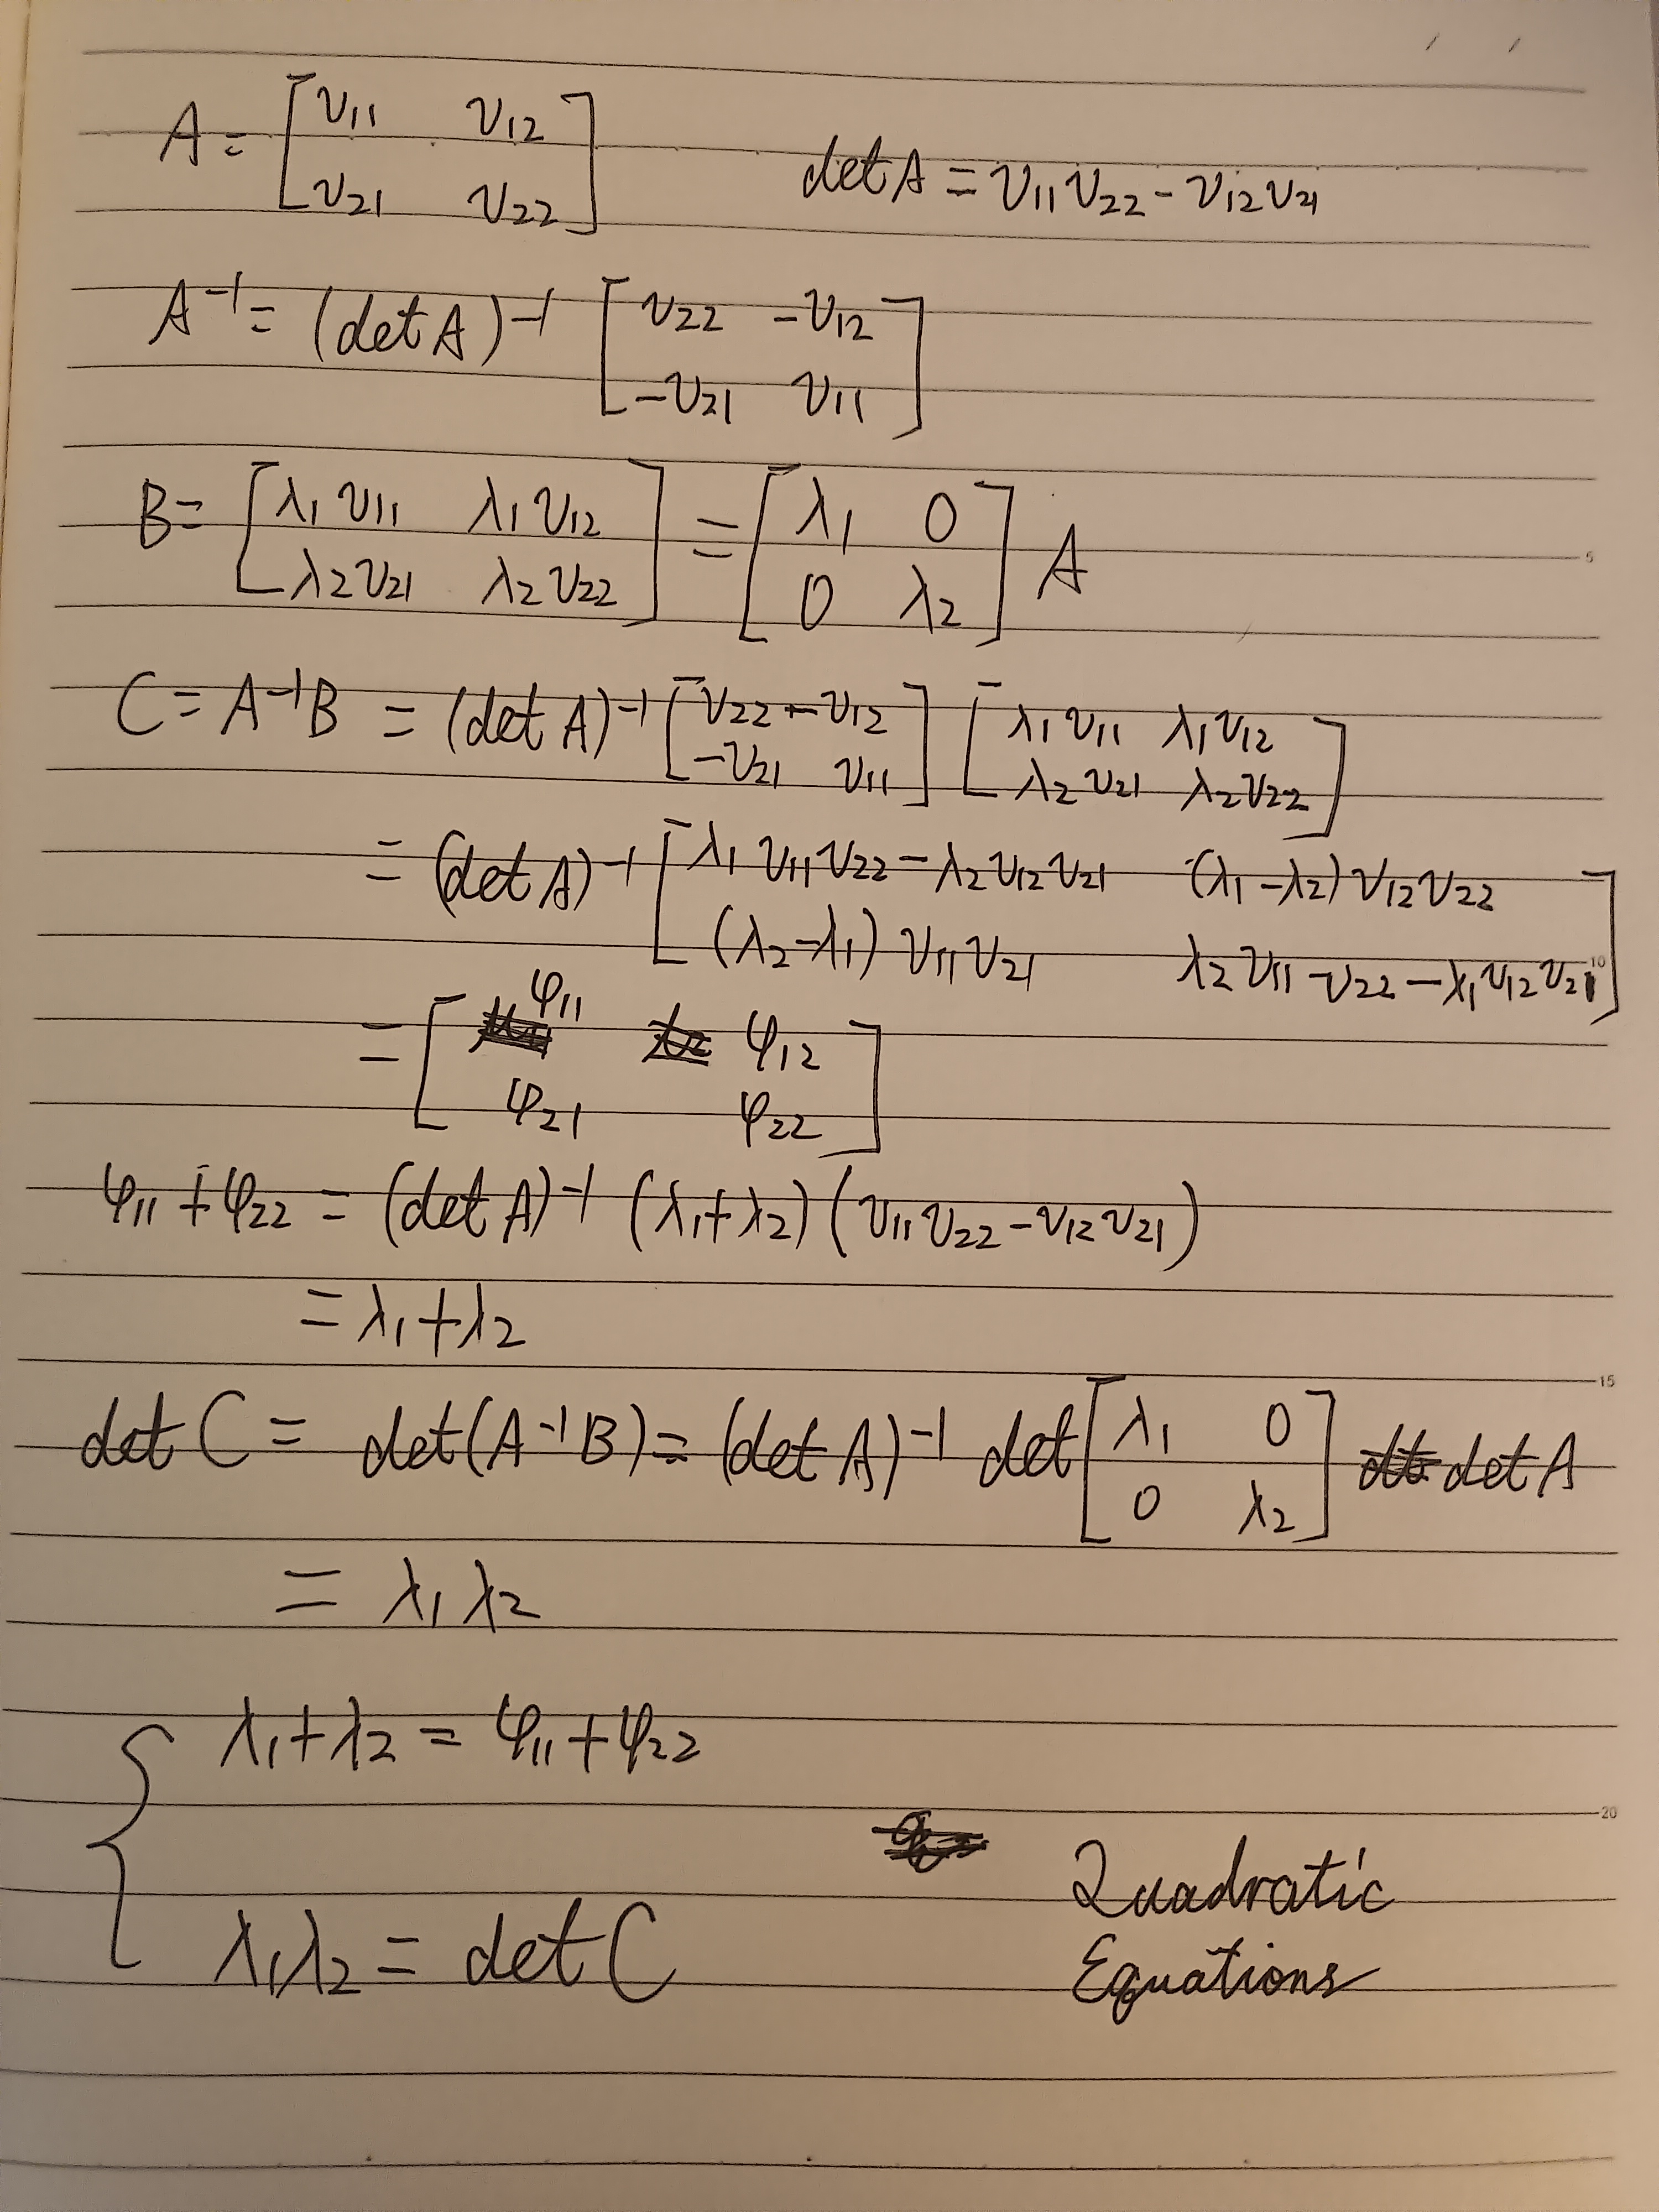 A = [ v₁₁ v₁₂ ; v₂₁ v₂₂ ] det A = v₁₁v₂₂ - v₁₂v₂₁
A⁻¹ = (det A)⁻¹ [ v₂₂ -v₁₂ ; -v₂₁ v₁₁ ]
B = [ λ₁v₁₁ λ₁v₁₂ ; λ₂v₂₁ λ₂v₂₂ ] = [ λ₁ 0 ; 0 λ₂ ] A
C = A⁻¹B = (det A)⁻¹ [ v₂₂ -v₁₂ ; -v₂₁ v₁₁ ] [ λ₁v₁₁ λ₁v₁₂ ; λ₂v₂₁ λ₂v₂₂ ]
= (det A)⁻¹ [ λ₁v₁₁v₂₂ - λ₂v₁₂v₂₁ (λ₁-λ₂)v₁₂v₂₂ ; (λ₂-λ₁)v₁₁v₂₁ λ₂v₁₁v₂₂ - λ₁v₁₂v₂₁ ]
= [ φ₁₁ φ₁₂ ; φ₂₁ φ₂₂ ]
φ₁₁ + φ₂₂ = (det A)⁻¹ (λ₁+λ₂) (v₁₁v₂₂ - v₁₂v₂₁)
= λ₁+λ₂
det C = det(A⁻¹B) = (det A)⁻¹ det [ λ₁ 0 ; 0 λ₂ ] det A
= λ₁λ₂
{ λ₁+λ₂ = φ₁₁+φ₂₂
λ₁λ₂ = det C
Quadratic
Equations
5
10
15
20